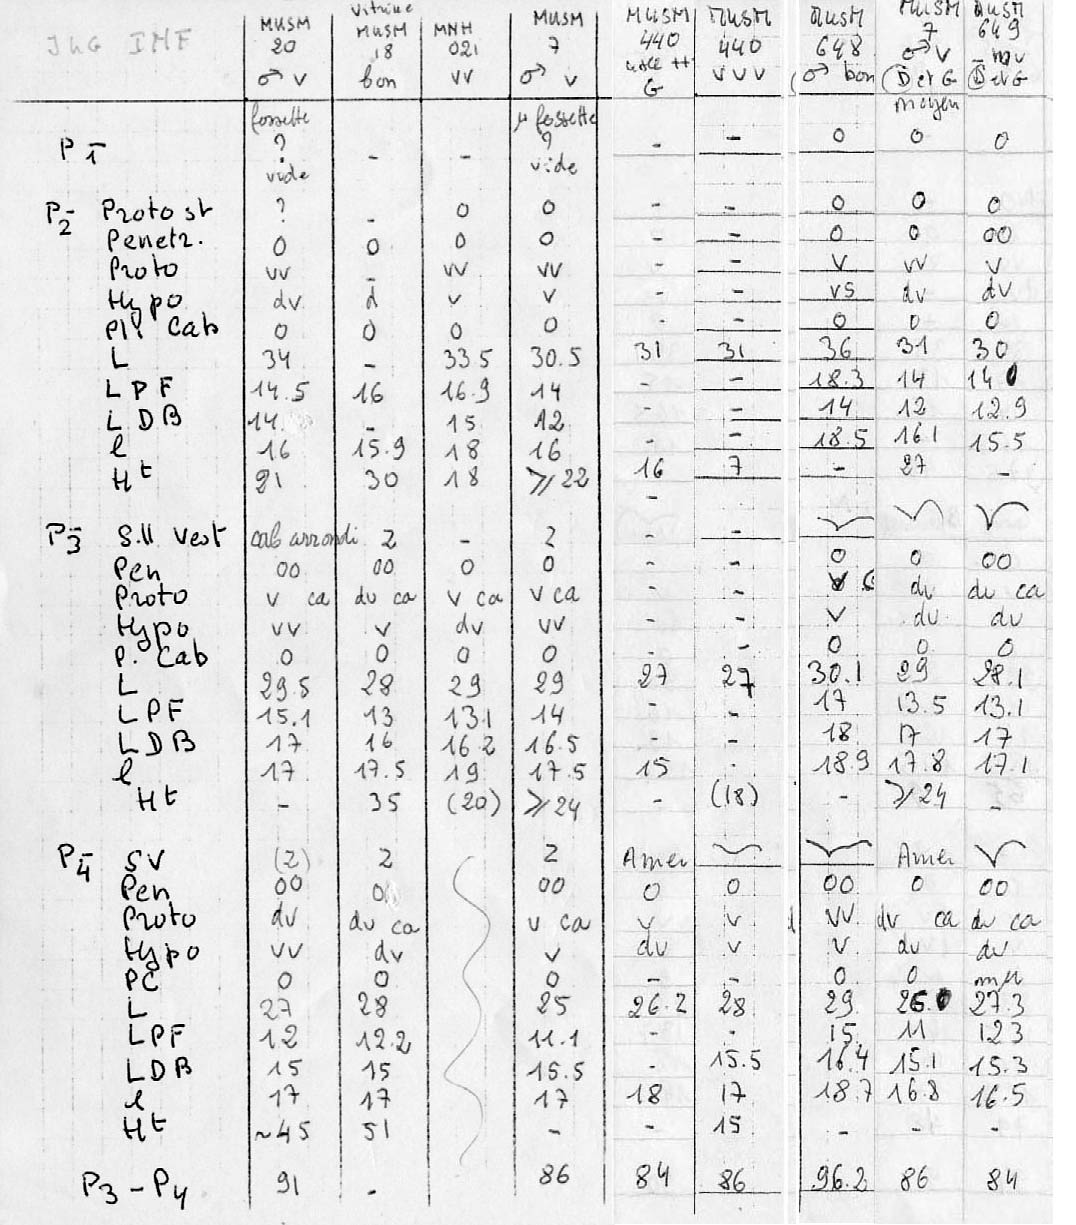 JUG INF
MUSM 20 ♂ v | Vitrine MUSM 18 bon | MNH 021 vv | MUSM 7 ♂ v | MUSM 440 G | MUSM 440 vvv | MUSM 648 (♂ bon | MUSM 7 ♂ v (D et G moyen | MUSM 649 mv (D et G
P1 | fossette ? vide | - | - | μ fossette ? vide | - | - | 0 | 0 | 0
P2 Proto st | ? | - | 0 | 0 | - | - | 0 | 0 | 0
Penetr. | 0 | 0 | 0 | 0 | - | - | 0 | 0 | 00
Proto | vv | - | vv | vv | - | - | v | vv | v
Hypo | dv | d | v | v | - | - | vs | dv | dv
Pli Cab | 0 | 0 | 0 | 0 | - | - | 0 | 0 | 0
L | 34 | - | 33.5 | 30.5 | 31 | 31 | 36 | 31 | 30
LPF | 14.5 | 16 | 16.9 | 14 | - | - | 18.3 | 14 | 14
LDB | 14 | - | 15 | 12 | - | - | 14 | 12 | 12.9
l | 16 | 15.9 | 18 | 16 | - | - | 18.5 | 16.1 | 15.5
Ht | 21 | 30 | 18 | ⩾22 | 16 | 7 | - | 27 | -
P3 S.ll Vest | cab arrondi | 2 | - | 2 | - | -
Pen | 00 | 00 | 0 | 0 | - | - | 0 | 0 | 00
Proto | v ca | dv ca | v ca | v ca | - | - | v | dv | dv ca
Hypo | vv | v | dv | vv | - | - | v | dv | dv
P. Cab | 0 | 0 | 0 | 0 | - | - | 0 | 0 | 0
L | 29.5 | 28 | 29 | 29 | 27 | 27 | 30.1 | 29 | 28.1
LPF | 15.1 | 13 | 13.1 | 14 | - | - | 17 | 13.5 | 13.1
LDB | 17 | 16 | 16.2 | 16.5 | - | - | 18 | 17 | 17
l | 17 | 17.5 | 19 | 17.5 | 15 | - | 18.9 | 17.8 | 17.1
Ht | - | 35 | (20) | ⩾24 | - | (18) | - | ⩾24 | -
P4 SV | (2) | 2 | 2 | Amer | Amer
Pen | 00 | 0 | 00 | 0 | 0 | 00 | 0 | 00
Proto | dv | dv ca | v ca | v | v | vv | dv ca | dv ca
Hypo | vv | dv | v | dv | v | v | dv | dv
PC | 0 | 0 | 0 | - | - | 0 | 0
L | 27 | 28 | 25 | 26.2 | 28 | 29 | 26 | 27.3
LPF | 12 | 12.2 | 11.1 | - | - | 15 | 11 | 12.3
LDB | 15 | 15 | 15.5 | - | 15.5 | 16.4 | 15.1 | 15.3
l | 17 | 17 | 17 | 18 | 17 | 18.7 | 16.8 | 16.5
Ht | ~45 | 51 | - | - | 15 | - | - | -
P3-P4 | 91 | - | 86 | 84 | 86 | 96.2 | 86 | 84